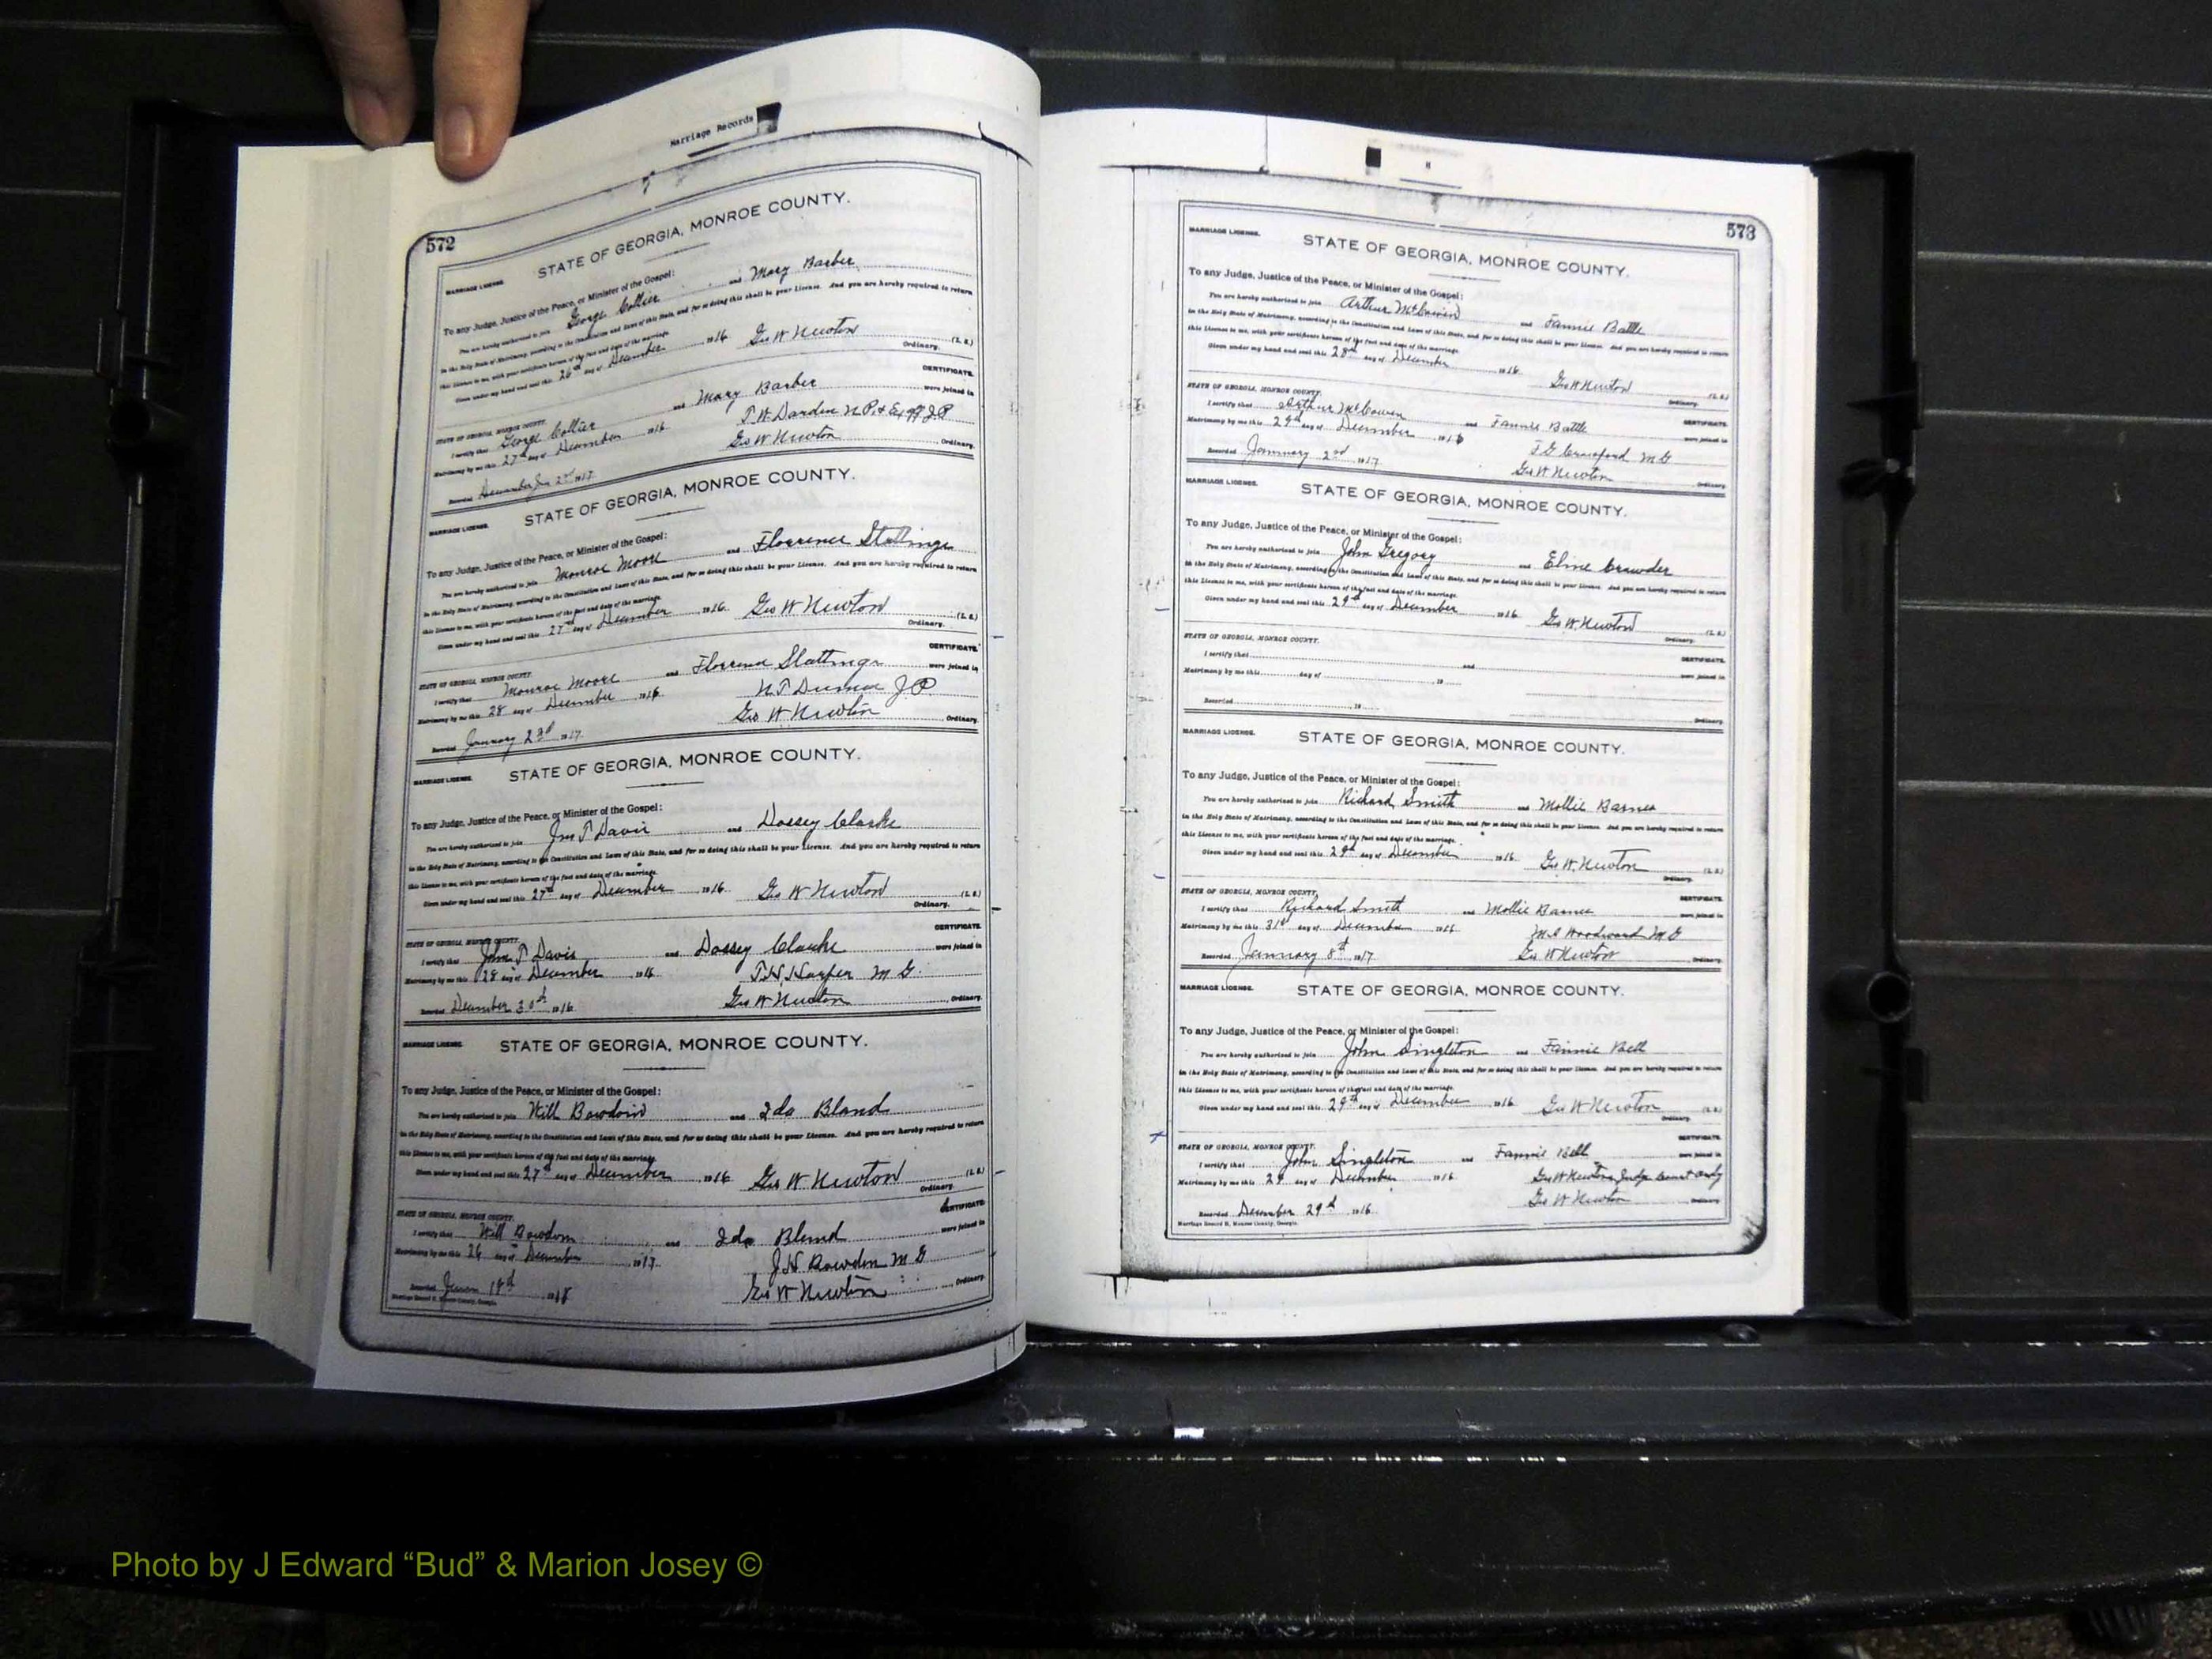 Marriage Records
572
MARRIAGE LICENSE.
STATE OF GEORGIA, MONROE COUNTY.
To any Judge, Justice of the Peace, or Minister of the Gospel:
You are hereby authorized to join George Collier and Mary Barber
in the Holy State of Matrimony, according to the Constitution and Laws of this State, and for so doing this shall be your License. And you are hereby required to return
this License to me, with your certificate hereon of the fact and date of the marriage.
Given under my hand and seal this 26th day of December 1916 Geo W Newton (L. S.)
Ordinary.
CERTIFICATE.
STATE OF GEORGIA, MONROE COUNTY.
I certify that George Collier and Mary Barber were joined in
Matrimony by me this 27th day of December 1916 T. W. Darden N.P. & Ex off J.P.
Recorded December Jan 2nd 1917 Geo W Newton Ordinary.
MARRIAGE LICENSE.
STATE OF GEORGIA, MONROE COUNTY.
To any Judge, Justice of the Peace, or Minister of the Gospel:
You are hereby authorized to join Monroe Moore and Florence
in the Holy State of Matrimony, according to the Constitution and Laws of this State, and for so doing this shall be your License. And you are hereby required to return
this License to me, with your certificate hereon of the fact and date of the marriage.
Given under my hand and seal this 27th day of December 1916. Geo W Newton (L. S.)
Ordinary.
CERTIFICATE.
STATE OF GEORGIA, MONROE COUNTY.
I certify that Monroe Moore and Florence were joined in
Matrimony by me this 28 day of December 1916 N. T. J P
Recorded January 23d 1917. Geo W Newton Ordinary.
MARRIAGE LICENSE.
STATE OF GEORGIA, MONROE COUNTY.
To any Judge, Justice of the Peace, or Minister of the Gospel:
You are hereby authorized to join Jno T Davis and Dossey Clarke
in the Holy State of Matrimony, according to the Constitution and Laws of this State, and for so doing this shall be your License. And you are hereby required to return
this License to me, with your certificate hereon of the fact and date of the marriage.
Given under my hand and seal this 27th day of December 1916. Geo W Newton (L. S.)
Ordinary.
CERTIFICATE.
STATE OF GEORGIA, MONROE COUNTY.
I certify that John T Davis and Dossey Clarke were joined in
Matrimony by me this 28 day of December 1916 T. H. Harper M G.
Recorded December 30th 1916 Geo W Newton Ordinary.
MARRIAGE LICENSE.
STATE OF GEORGIA, MONROE COUNTY.
To any Judge, Justice of the Peace, or Minister of the Gospel:
You are hereby authorized to join Will Bowdoin and Ida Bland
in the Holy State of Matrimony, according to the Constitution and Laws of this State, and for so doing this shall be your License. And you are hereby required to return
this License to me, with your certificate hereon of the fact and date of the marriage.
Given under my hand and seal this 27th day of December 1916 Geo W Newton (L. S.)
Ordinary.
CERTIFICATE.
STATE OF GEORGIA, MONROE COUNTY.
I certify that Will Bowdoin and Ida Bland were joined in
Matrimony by me this 26 day of December 1917. J. H. Bowden M G
Recorded 1918 Geo W Newton Ordinary.
Marriage Record H, Monroe County, Georgia.
573
MARRIAGE LICENSE.
STATE OF GEORGIA, MONROE COUNTY.
To any Judge, Justice of the Peace, or Minister of the Gospel:
You are hereby authorized to join Arthur McCowen and Fannie Battle
in the Holy State of Matrimony, according to the Constitution and Laws of this State, and for so doing this shall be your License. And you are hereby required to return
this License to me, with your certificate hereon of the fact and date of the marriage.
Given under my hand and seal this 28th day of December 1916 Geo W Newton (L. S.)
Ordinary.
STATE OF GEORGIA, MONROE COUNTY. CERTIFICATE.
I certify that Arthur McCowen and Fannie Battle were joined in
Matrimony by me this 29th day of December 1916 T. G. Crawford M G
Recorded January 2nd 1917 Geo W Newton Ordinary.
MARRIAGE LICENSE.
STATE OF GEORGIA, MONROE COUNTY.
To any Judge, Justice of the Peace, or Minister of the Gospel:
You are hereby authorized to join John Gregory and Eline Crowder
in the Holy State of Matrimony, according to the Constitution and Laws of this State, and for so doing this shall be your License. And you are hereby required to return
this License to me, with your certificate hereon of the fact and date of the marriage.
Given under my hand and seal this 29th day of December 1916 Geo W. Newton (L. S.)
Ordinary.
STATE OF GEORGIA, MONROE COUNTY. CERTIFICATE.
I certify that and were joined in
Matrimony by me this day of 19
Recorded 19 Ordinary.
MARRIAGE LICENSE.
STATE OF GEORGIA, MONROE COUNTY.
To any Judge, Justice of the Peace, or Minister of the Gospel:
You are hereby authorized to join Richard Smith and Mollie Barnes
in the Holy State of Matrimony, according to the Constitution and Laws of this State, and for so doing this shall be your License. And you are hereby required to return
this License to me, with your certificate hereon of the fact and date of the marriage.
Given under my hand and seal this 29th day of December 1916. Geo W. Newton (L. S.)
Ordinary.
STATE OF GEORGIA, MONROE COUNTY. CERTIFICATE.
I certify that Richard Smith and Mollie Barnes were joined in
Matrimony by me this 31st day of December 1916. Woodward M G
Recorded January 8th 1917 Geo W Newton Ordinary.
MARRIAGE LICENSE.
STATE OF GEORGIA, MONROE COUNTY.
To any Judge, Justice of the Peace, or Minister of the Gospel:
You are hereby authorized to join John Singleton and Fannie Bell
in the Holy State of Matrimony, according to the Constitution and Laws of this State, and for so doing this shall be your License. And you are hereby required to return
this License to me, with your certificate hereon of the fact and date of the marriage.
Given under my hand and seal this 29th day of December 1916 Geo W Newton (L. S.)
Ordinary.
STATE OF GEORGIA, MONROE COUNTY. CERTIFICATE.
I certify that John Singleton and Fannie Bell were joined in
Matrimony by me this 29 day of December 1916 Geo W Newton Judge Court Ordy
Recorded December 29th 1916. Geo W Newton Ordinary.
Marriage Record H, Monroe County, Georgia.
Photo by J Edward “Bud” & Marion Josey ©